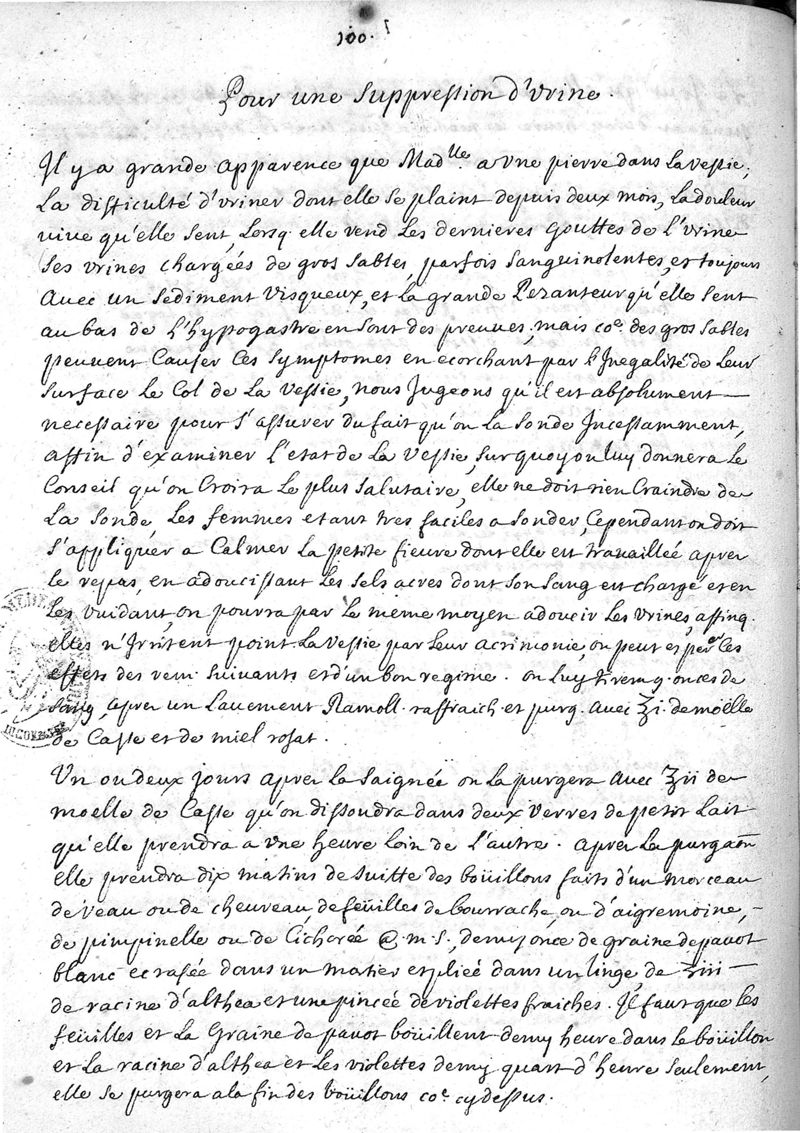 100.
Pour une Suppression d'Vrine.
Il y a grande apparence que Mad.lle a vne pierre dans la vessie,
La difficulté d'vriner dont elle se plaint depuis deux mois, la douleur
vive qu'elle sent, Lorsq. elle rend Les dernieres gouttes de L'vrine
Ses vrines chargées de gros sables, parfois sanguinolentes, et toujours
avec un sediment visqueux, et la grande Pezanteur qu'elle sent
au bas de l'hypogastre en sont des preuues, mais coe. des gros sables
peuuent Causer Ces symptomes en ecorchant par l'Inegalité de Leur
surface Le Col de La vessie, nous Jugeons qu'il est absolument
necessaire pour s'assurer du fait qu'on La sonde Incessamment,
affin d'examiner L'etat de La vessie, sur quoy on luy donnera Le
Conseil qu'on Croira Le plus salutaire, elle ne doit rien Craindre de
La sonde, Les femmes etant tres faciles a sonder, Cependant on doit
s'appliquer a Calmer La petite fieure dont elle est travaillée apres
le repas, en adoucissant Les sels acres dont son sang est chargé et en
Les vuidant, on pourra par Le meme moyen adoucir Les vrines, affinq.
elles n'Irritent point La vessie par leur acrimonie, on peut esperer Ces
effets des rem. suivants et d'un bon regime. on Luy tirera 9. onces de
sang, apres un Lauement Ramoll. raffraich et purg. avec ℥i. de moëlle
de Casse et de miel rosat.
Un ou deux jours apres La saignée on La purgera avec ℥ii de
moelle de Casse qu'on dissoudra dans deux verres de petit Lait
qu'elle prendra a vne heure loin de L'autre. apres La purgaon
elle prendra dix matins de suitte des boüillons faits d'un morceau
de veau ou de cheuveau, de feüilles de bourrache, ou d'aigremoine,
de pimpinelle ou de Cichorée @. m. s., demy once de graine de pavot
blanc ecrasée dans un mortier et pliée dans un linge de ℥iii
de racine d'althea et une pincée de violettes fraiches. Il faut que les
feüilles et La Graine de pavot boüillent demy heure dans le boüillon
et La racine d'althea et Les violettes demy quart d'heure seulement,
elle se purgera a la fin des boüillons coe. cy dessus.